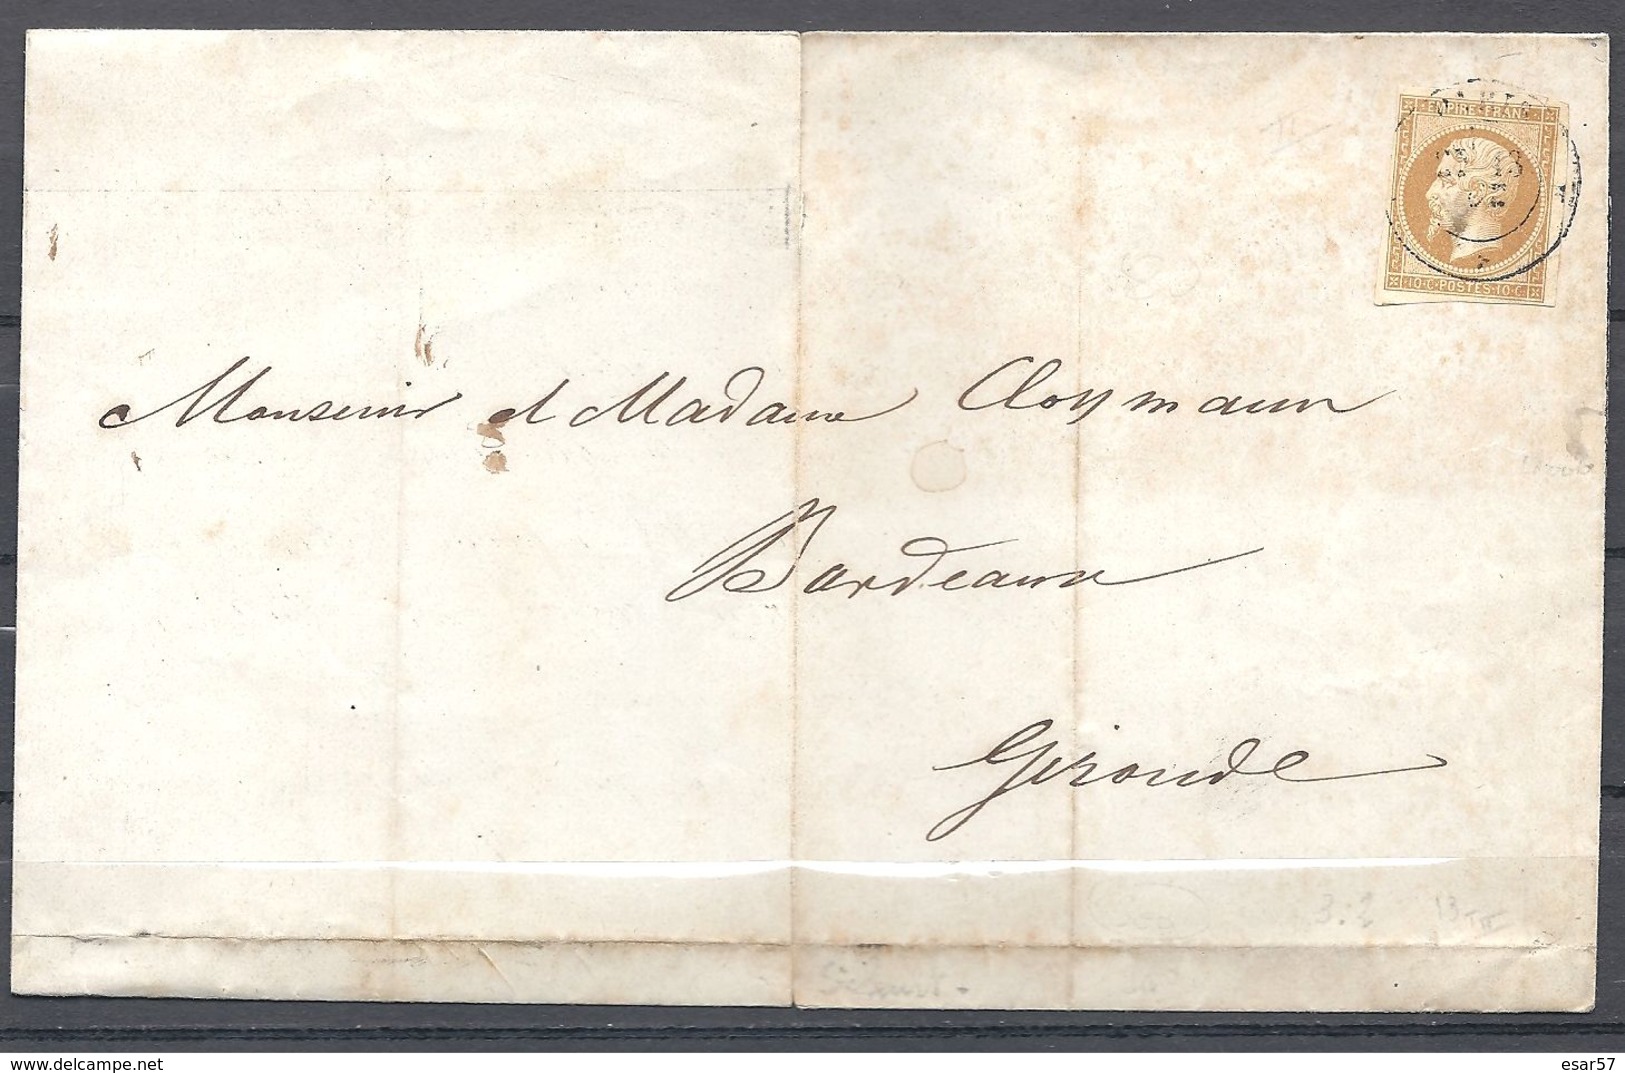 EMPIRE · FRANC
10 · C · POSTES · 10 · C
Monsieur et Madame Cloymann
Bordeaux
Gironde
3:2
13 III
www.delcampe.net
esar57